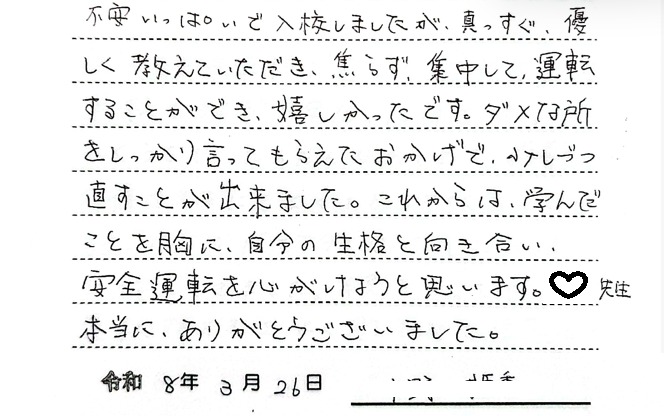 不安いっぱいで入校しましたが、真っすぐ、優
しく教えていただき、焦らず、集中して、運転
することができ、嬉しかったです。ダメな所
をしっかり言ってもらえたおかげで、少しづつ
直すことが出来ました。これからは、学んだ
ことを胸に、自分の性格と向き合い、
安全運転を心がけようと思います。♡先生
本当に、ありがとうございました。
令和 8年 3月 26日